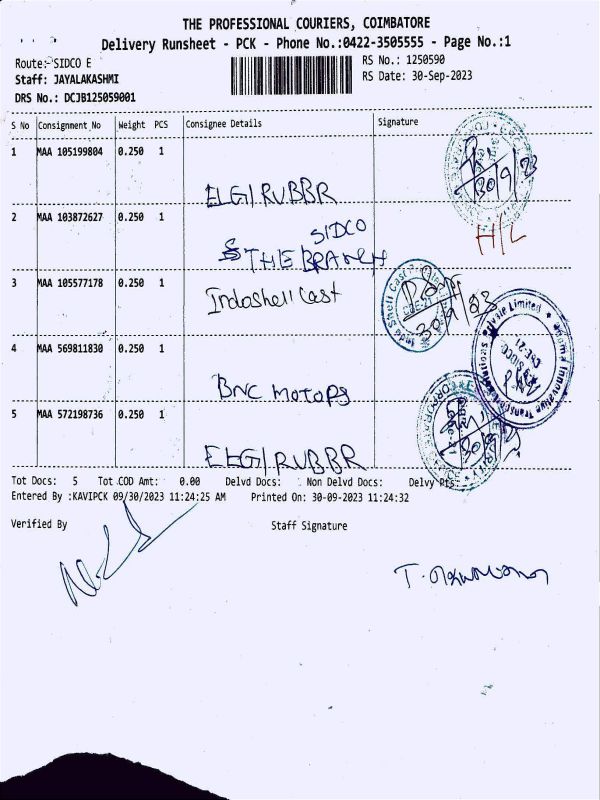 THE PROFESSIONAL COURIERS, COIMBATORE
Delivery Runsheet - PCK - Phone No.:0422-3505555 - Page No.:1
Route:-SIDCO E
RS No.: 1250590
Staff: JAYALAKASHMI
RS Date: 30-Sep-2023
DRS No.: DCJB125059001
S No Consignment No Weight PCS Consignee Details Signature
1 MAA 105199804 0.250 1
30/9/23
ELGI RUBBR
2 MAA 103872627 0.250 1
SIDCO
H/L
THE BRANCH
3 MAA 105577178 0.250 1
Indoshell Cast
30/9/23
4 MAA 569811830 0.250 1
BNC MOTORS
5 MAA 572198736 0.250 1
ELGI RUBBR
Tot Docs: 5 Tot COD Amt: 0.00 Delvd Docs: Non Delvd Docs: Delvy Pts:
Entered By :KAVIPCK 09/30/2023 11:24:25 AM Printed On: 30-09-2023 11:24:32
Verified By Staff Signature